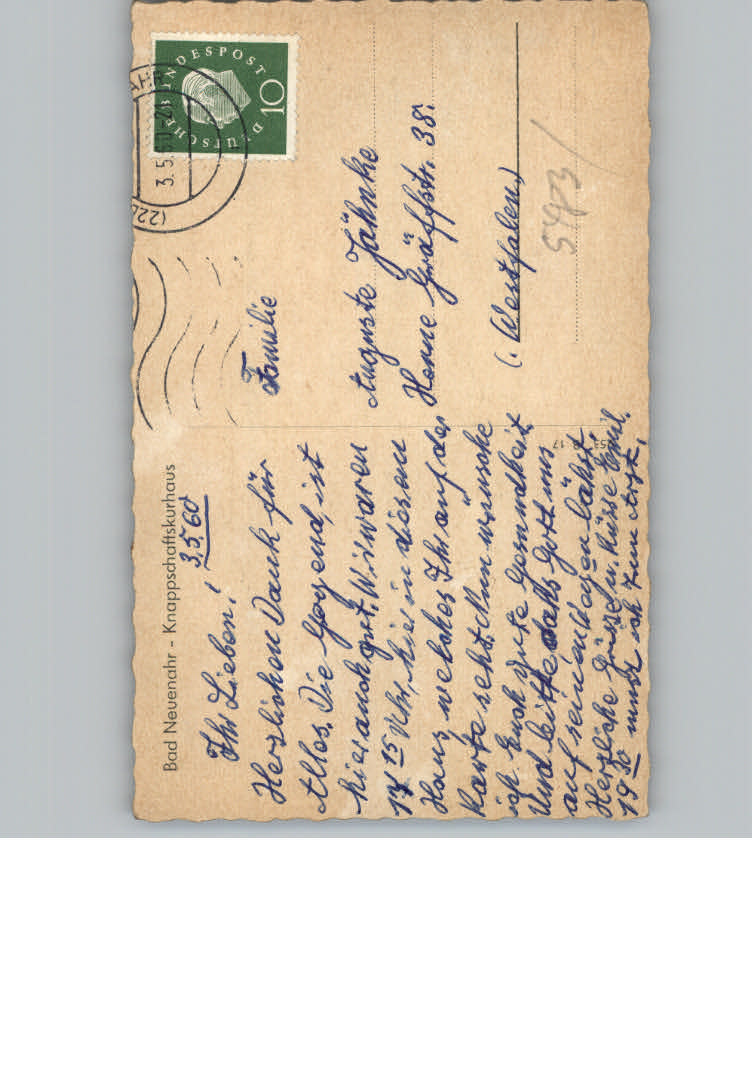 Bad Neuenahr - Knappschaftskurhaus
3.5.60
Ihr Lieben!
Herzlichen Dank für
Alles. Die Gegend ist
hier auch gut. Wir waren
17 15 Uhr hier in diesem
Haus welches Ihr auf der
Karte seht. Nun wünsche
ich Euch gute Gesundheit
Und bitte daß Gott uns
auf seinen Wegen läßt.
Herzliche Grüße u. Küsse Emil.
19 30 muss ich zum Arzt.
DEUTSCHE BUNDESPOST
10
AHR
3.5.60
(22b
Familie
Auguste Jähnke
Herne Gräffstr. 38.
(Westfalen)
5483
17